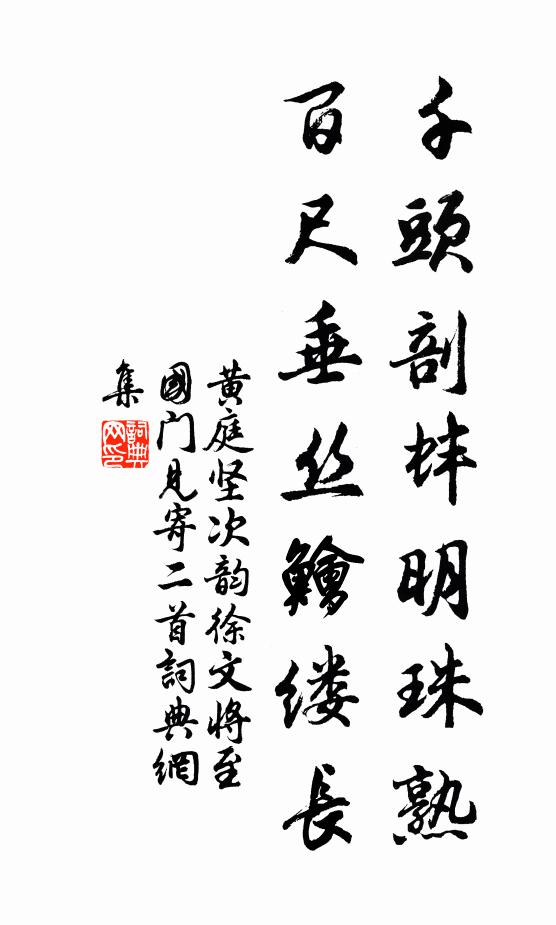 千頭剖蚌明珠熟
百尺垂丝鱠缕長
黄庭坚次韵徐文将至
國门見寄二首詞典網
集
詞典网印